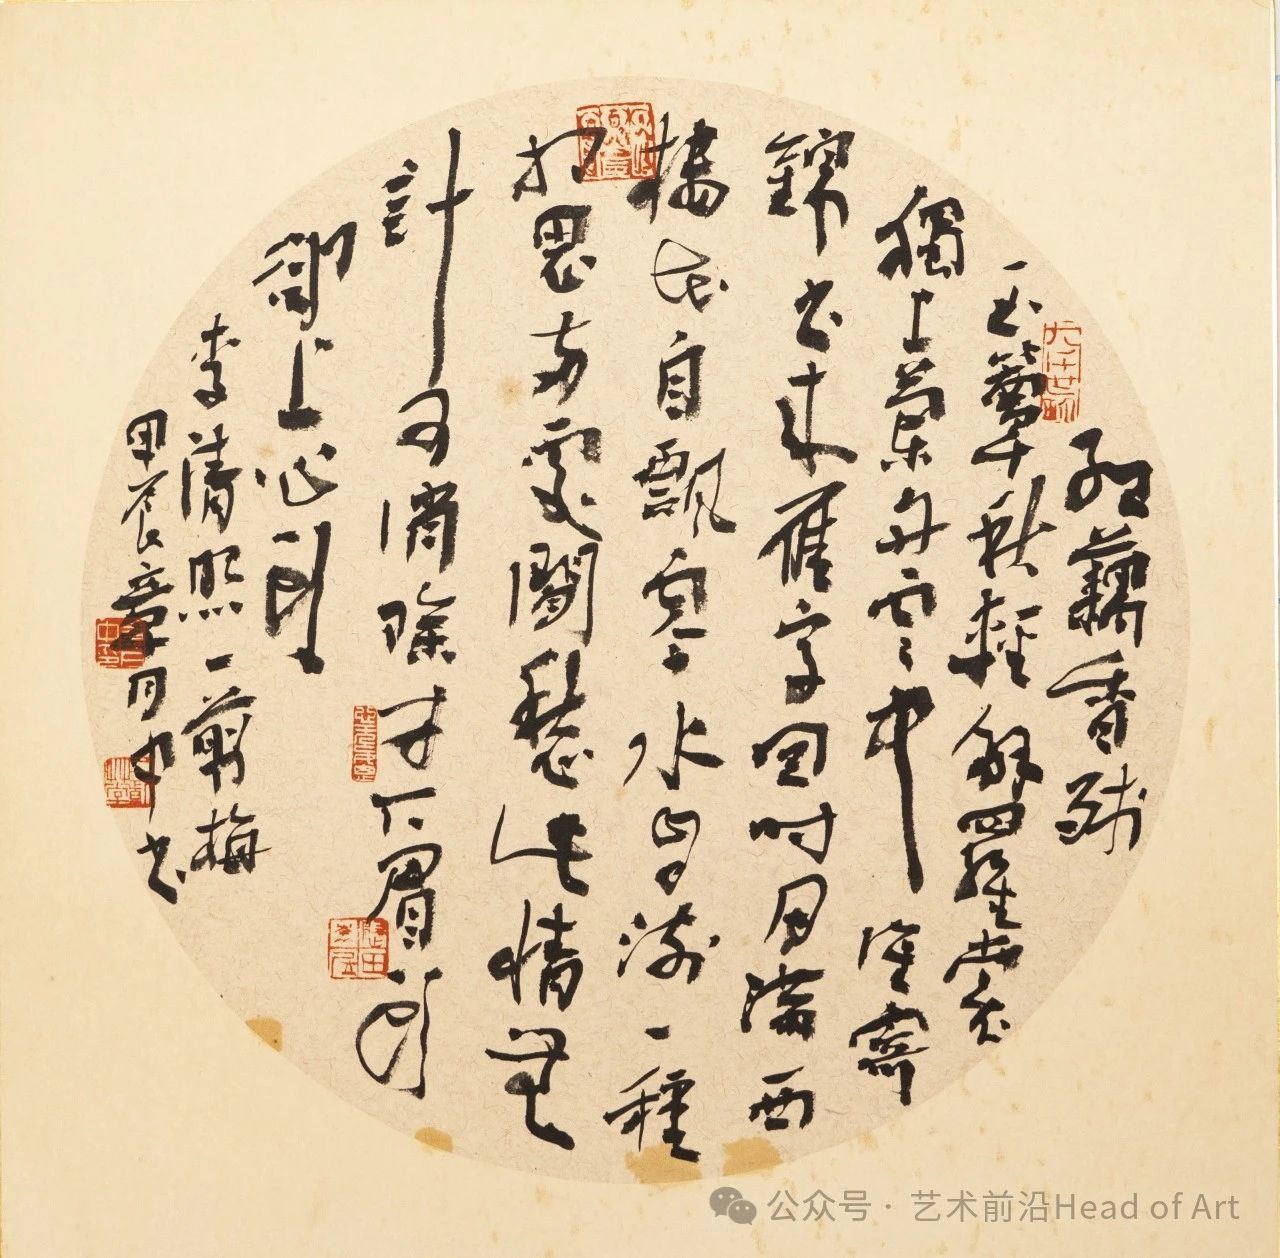 紅藕香殘
玉簟秋輕解羅裳
獨上蘭舟雲中誰寄
錦書來雁字回時月滿西
樓花自飄零水自流一種
相思兩處閒愁此情無
計可消除才下眉頭
卻上心頭
李清照一剪梅
甲辰章月中書
公众号·艺术前沿Head of Art